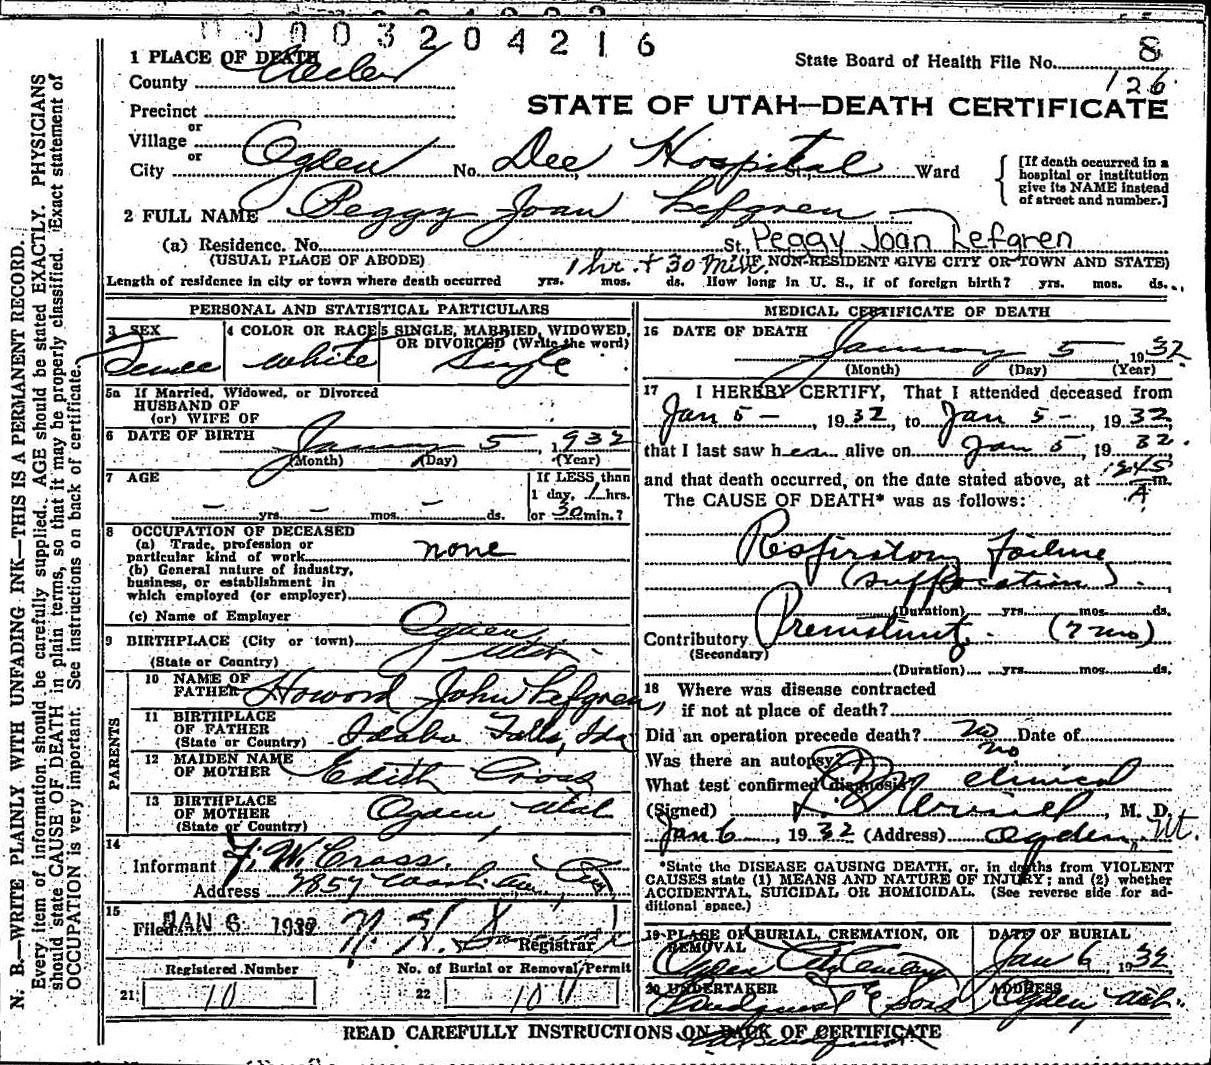 0 0 0 3 2 0 4 2 1 6
1 PLACE OF DEATH
County Weber
State Board of Health File No. 8
126
Precinct
STATE OF UTAH—DEATH CERTIFICATE
or
Village
or
City Ogden No. Dee Hospital St., Ward
[If death occurred in a
hospital or institution
give its NAME instead
of street and number.]
2 FULL NAME Peggy Joan Lefgren
(a) Residence. No. St. Peggy Joan Lefgren
(USUAL PLACE OF ABODE) 1 hr. + 30 min. (IF NON-RESIDENT GIVE CITY OR TOWN AND STATE)
Length of residence in city or town where death occurred yrs. mos. ds. How long in U. S., if of foreign birth? yrs. mos. ds.
PERSONAL AND STATISTICAL PARTICULARS
3 SEX
4 COLOR OR RACE
white
5 SINGLE, MARRIED, WIDOWED,
OR DIVORCED (Write the word)
Single
5a If Married, Widowed, or Divorced
HUSBAND OF
(or) WIFE OF
6 DATE OF BIRTH January 5 1932
(Month) (Day) (Year)
7 AGE
– yrs. – mos. – ds.
If LESS than
1 day, 1 hrs.
or 30 min.?
8 OCCUPATION OF DECEASED
(a) Trade, profession or
particular kind of work none
(b) General nature of industry,
business, or establishment in
which employed (or employer)
(c) Name of Employer
9 BIRTHPLACE (City or town) Ogden
(State or Country) Utah
PARENTS
10 NAME OF
FATHER Howard John Lefgren
11 BIRTHPLACE
OF FATHER
(State or Country) Idaho Falls, Ida
12 MAIDEN NAME
OF MOTHER Edith Cross
13 BIRTHPLACE
OF MOTHER
(State or Country) Ogden, Utah
14
Informant F. W. Cross.
Address 2857
15
Filed JAN 6 1932 Registrar
Registered Number
21 10
No. of Burial or Removal Permit
22 10
MEDICAL CERTIFICATE OF DEATH
16 DATE OF DEATH
January 5 1932
(Month) (Day) (Year)
17 I HEREBY CERTIFY, That I attended deceased from
Jan 5 –, 1932, to Jan 5 –, 1932,
that I last saw her alive on Jan 5, 1932.
and that death occurred, on the date stated above, at 1245 A m.
The CAUSE OF DEATH* was as follows:
Respiratory failure
(suffocation).
(Duration) yrs. mos. ds.
Contributory
(Secondary)
(7 mo)
(Duration) yrs. mos. ds.
18 Where was disease contracted
if not at place of death?
Did an operation precede death? no Date of
Was there an autopsy? no
What test confirmed diagnosis? clinical
(Signed) M. D.
Jan 6, 1932 (Address) Ogden, Ut.
*State the DISEASE CAUSING DEATH, or, in deaths from VIOLENT
CAUSES state (1) MEANS AND NATURE OF INJURY; and (2) whether
ACCIDENTAL, SUICIDAL OR HOMICIDAL. (See reverse side for ad-
ditional space.)
19 PLACE OF BURIAL, CREMATION, OR
REMOVAL
Ogden City Cemetery
DATE OF BURIAL
Jan 6, 1932
20 UNDERTAKER
Lindquist & Sons
ADDRESS
Ogden Utah.
READ CAREFULLY INSTRUCTIONS ON BACK OF CERTIFICATE
N. B.—WRITE PLAINLY WITH UNFADING INK—THIS IS A PERMANENT RECORD.
Every item of information should be carefully supplied. AGE should be stated EXACTLY. PHYSICIANS
should state CAUSE OF DEATH in plain terms, so that it may be properly classified. Exact statement of
OCCUPATION is very important. See instructions on back of certificate.